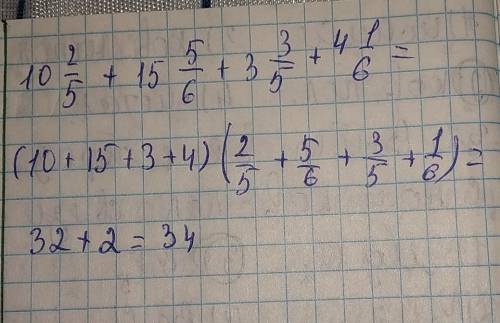 10 2/5 + 15 5/6 + 3 3/5 + 4 1/6 =
(10 + 15 + 3 + 4) (2/5 + 5/6 + 3/5 + 1/6) =
32 + 2 = 34